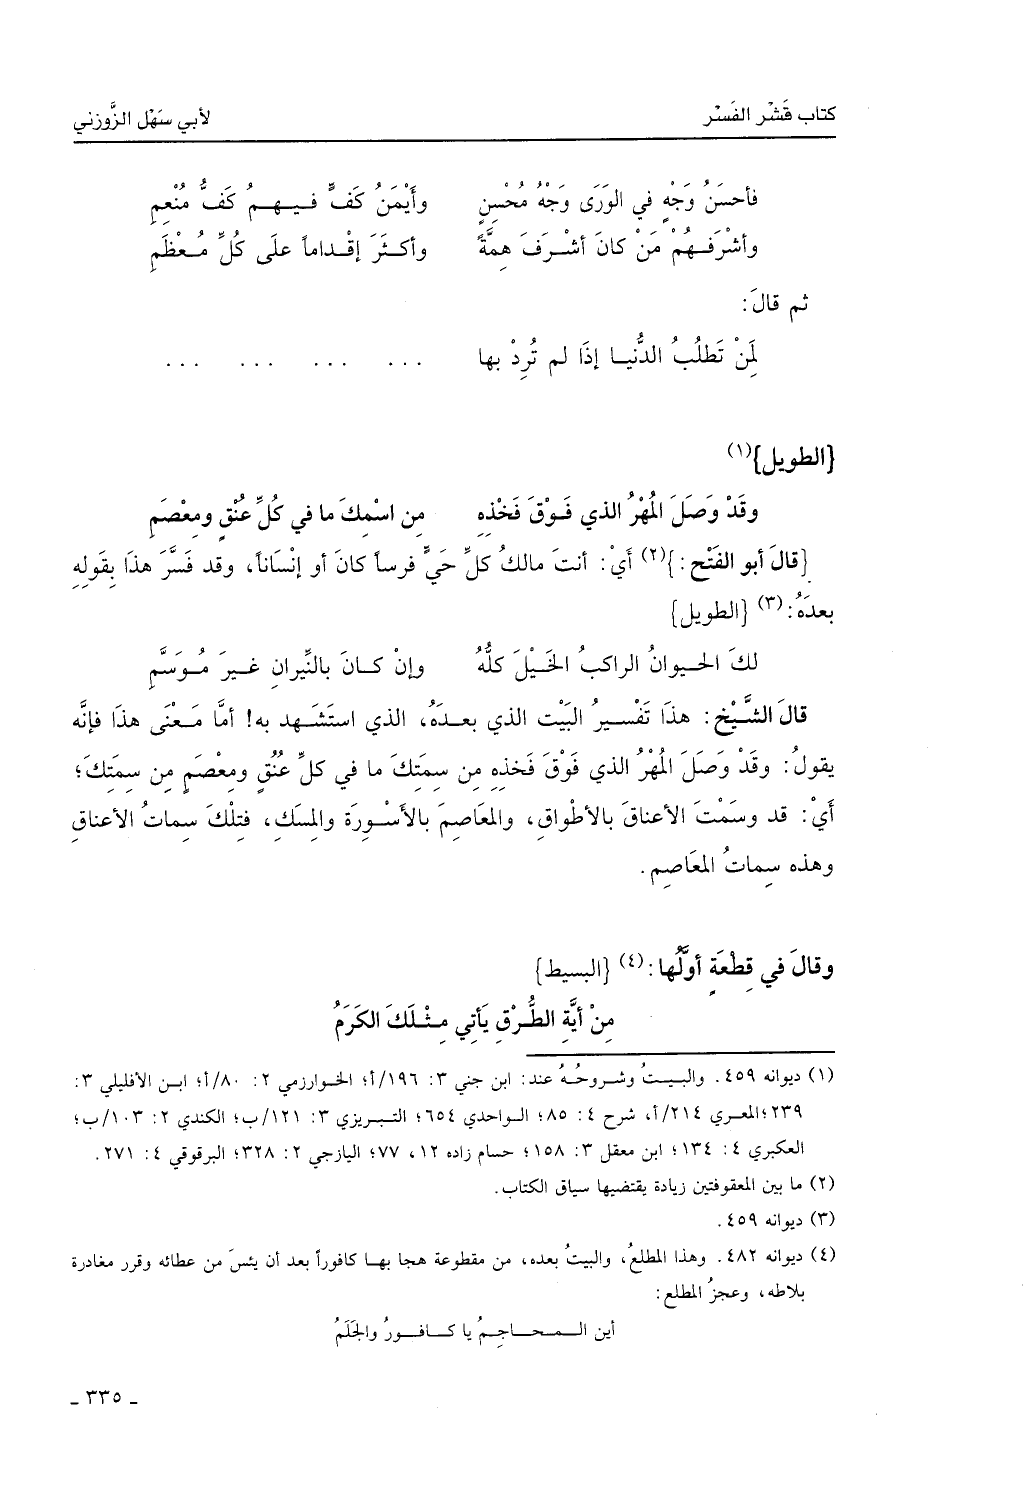 كتاب قَشْر الفَسْر لأبي سَهْل الزَّوزني
فأحسَنُ وَجْهٍ في الوَرَى وَجْهُ مُحْسِنٍ وأَيْمَنُ كَفٍّ فيهمُ كَفُّ مُنْعِمِ
وأشْرَفُهُمْ مَنْ كانَ أشْرَفَ هِمَّةً وأكثَرَ إقْداماً على كُلِّ مُعْظَمِ
ثم قالَ:
لِمَنْ تَطلُبُ الدُّنيا إذَا لم تُرِدْ بها ... ... ... ...
{الطويل}(١)
وقَدْ وَصَلَ المُهْرُ الذي فَوْقَ فَخْذِهِ مِن اسْمِكَ ما في كُلِّ عُنْقٍ ومعْصَمِ
{قالَ أبو الفَتْح:}(٢) أيْ: أنتَ مالكُ كلِّ حَيٍّ فرساً كانَ أو إنْسَاناً، وقد فَسَّرَ هذَا بقَولِهِ
بعدَهُ:(٣) {الطويل}
لكَ الحيوانُ الراكبُ الخَيْلَ كلُّهُ وإنْ كانَ بالنِّيرانِ غيرَ مُوَسَّمِ
قالَ الشَّيْخ: هذَا تَفْسيرُ البَيْت الذي بعدَهُ، الذي استَشْهد به! أمَّا مَعْنَى هذَا فإنَّه
يقولُ: وقَدْ وَصَلَ المُهْرُ الذي فَوْقَ فَخذِهِ مِن سِمَتِكَ ما في كلِّ عنُقٍ ومعْصَمٍ مِن سِمَتِكَ؛
أيْ: قد وسَمْتَ الأعناقَ بالأطْواقِ، والمَعَاصِمَ بالأَسْورَةِ والمسَكِ، فتلْكَ سِماتُ الأعناقِ
وهذه سِماتُ المَعَاصِمِ.
وقالَ في قِطْعَةٍ أوَّلُها:(٤) {البسيط}
مِنْ أيَّةِ الطُّرْقِ يَأتي مِثْلَكَ الكَرَمُ
(١) ديوانه ٤٥٩. والبيتُ وشروحُهُ عند: ابن جني ٣: ١٩٦/أ؛ الخوارزمي ٢: ٨٠/أ؛ ابن الأفليلي ٣:
٢٣٩؛المعري ٢١٤/أ، شرح ٤: ٨٥؛ الواحدي ٦٥٤؛ التبريزي ٣: ١٢١/ب؛ الكندي ٢: ١٠٣/ب؛
العكبري ٤: ١٣٤؛ ابن معقل ٣: ١٥٨؛ حسام زاده ١٢، ٧٧؛ اليازجي ٢: ٣٢٨؛ البرقوقي ٤: ٢٧١.
(٢) ما بين المعقوفتين زيادة يقتضيها سياق الكتاب.
(٣) ديوانه ٤٥٩.
(٤) ديوانه ٤٨٢. وهذا المطلعُ، والبيتُ بعده، من مقطوعة هجا بها كافوراً بعد أن يئسَ من عطائه وقرر مغادرة
بلاطه، وعجزُ المطلع:
أين المحاجِمُ يا كافورُ والجَلَمُ
ـ ٣٣٥ ـ